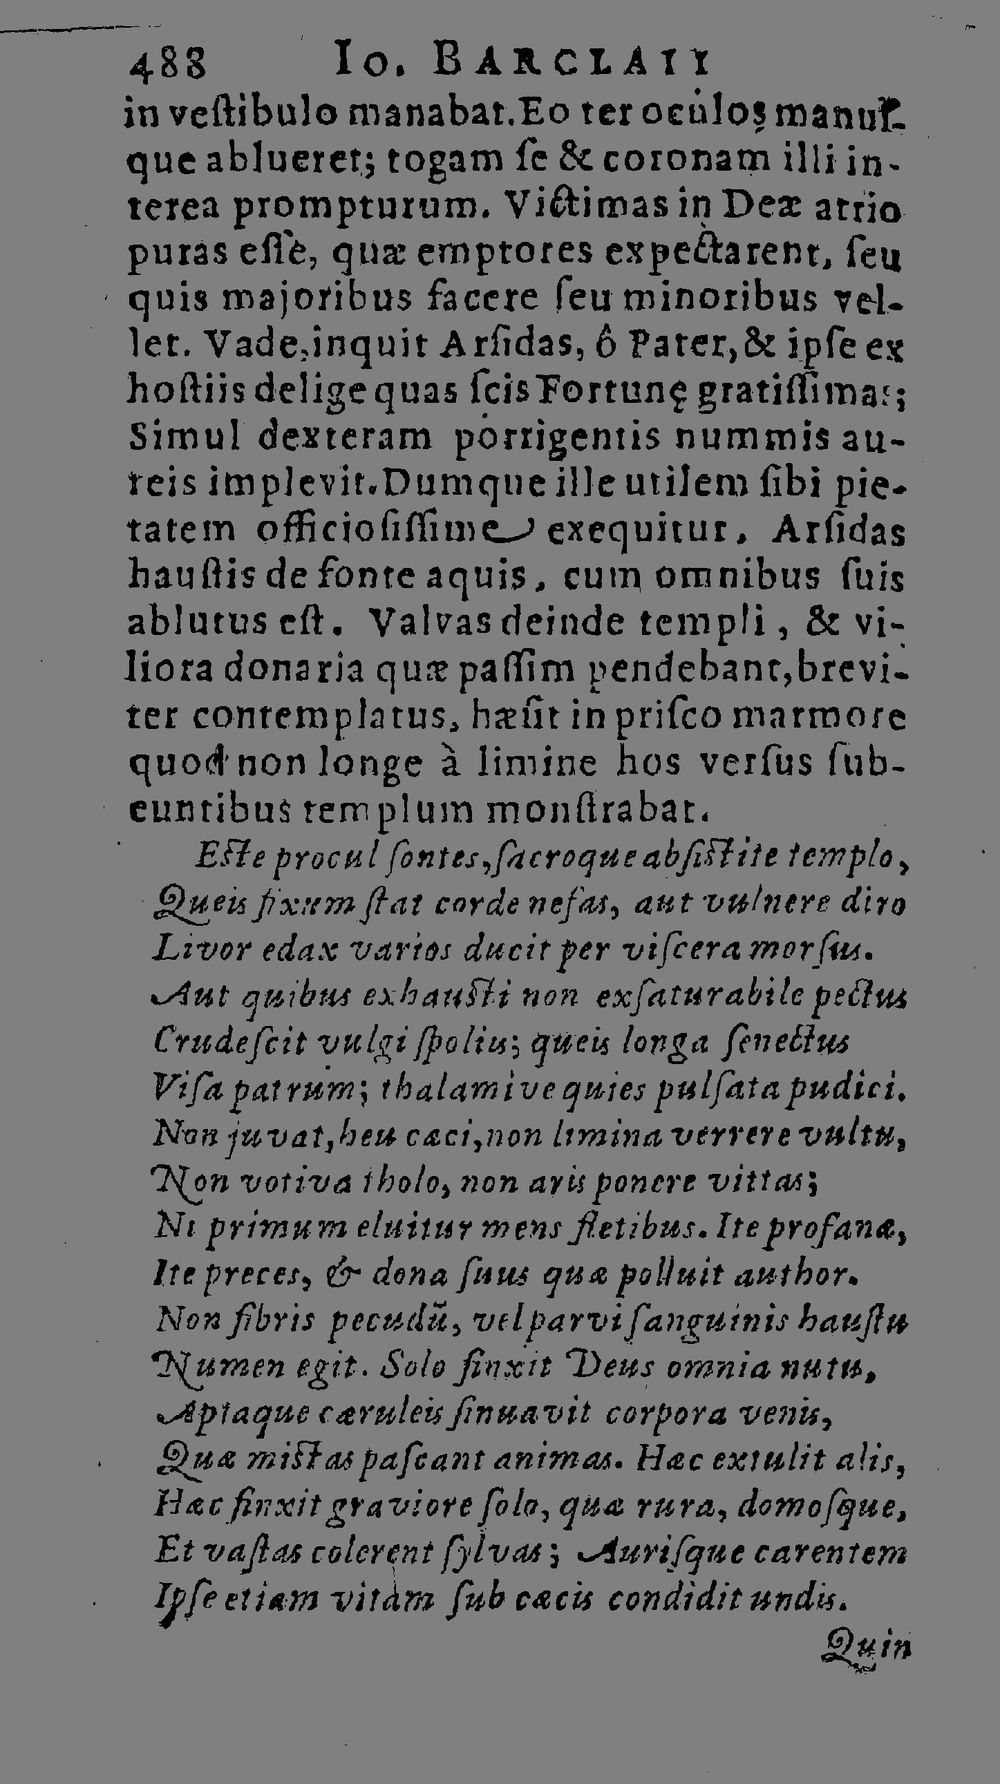 488 Io. BARCLAII
in veſtibulo manabat. Eo ter oculos manuſ-
que ablueret; togam ſe & coronam illi in-
terea prompturum. Victimas in Deæ atrio
puras eſſe, quæ emptores expectarent, ſeu
quis majoribus facere ſeu minoribus vel-
let. Vade, inquit Arſidas, ô Pater, & ipſe ex
hoſtiis delige quas ſcis Fortunę gratiſſimas;
Simul dexteram porrigentis nummis au-
reis implevit. Dumque ille utilem ſibi pie-
tatem officioſiſſime exequitur, Arſidas
hauſtis de fonte aquis, cum omnibus ſuis
ablutus eſt. Valvas deinde templi, & vi-
liora donaria quæ paſſim pendebant, brevi-
ter contemplatus, hæſit in priſco marmore
quod non longe à limine hos verſus ſub-
euntibus templum monſtrabat.
Eſte procul ſontes, ſacroque abſiſtite templo,
Queis fixum ſtat corde nefas, aut vulnere diro
Livor edax varios ducit per viſcera morſus.
Aut quibus exhauſti non exſaturabile pectus
Crudeſcit vulgi ſpoliis; queis longa ſenectus
Viſa patrum; thalamive quies pulſata pudici.
Non juvat, heu cæci, non limina verrere vultu,
Non votiva tholo, non aris ponere vittas;
Ni primum eluitur mens fletibus. Ite profanæ,
Ite preces, & dona ſuus quæ polluit author.
Non fibris pecudũ, vel parvi ſanguinis hauſtu
Numen egit. Solo finxit Deus omnia nutu,
Aptaque cæruleis ſinuavit corpora venis,
Quæ miſtas paſcant animas. Hæc extulit alis,
Hæc finxit graviore ſolo, quæ rura, domoſque,
Et vaſtas colerent ſylvas; Auriſque carentem
Ipſe etiam vitàm ſub cæcis condidit undis.
Quin